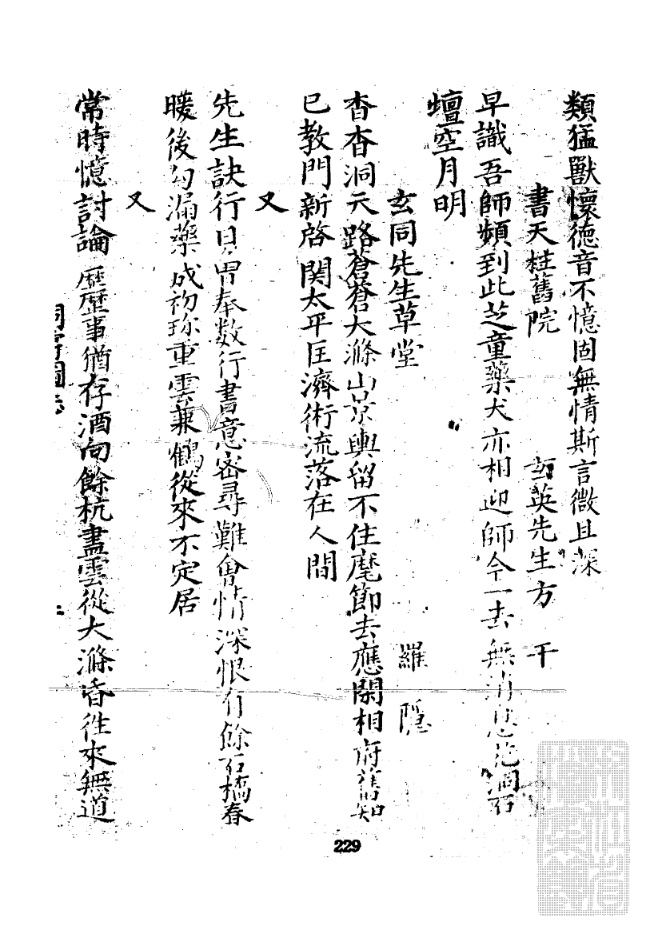 類猛獸懷德音不憶固無情斯言微且深
書天柱舊院 玄英先生方 干
早識吾師頻到此芝童藥犬亦相迎師今一去無消息花洞石
壇空月明
玄同先生草堂 羅 隱
杳杳洞天路蒼蒼大滌山景輿留不住麾節去應閑相府舊知
已教門新啓関太平匡濟術流落在人間
又
先生訣行日曾奉数行書意密尋難會情深恨有餘石橋春
暖後勾漏藥成初珎重雲兼鶴從來不定居
又
常時憶討論歷歷事猶存酒向餘杭盡雲從大滌昏往來無道
洞霄圖志
229